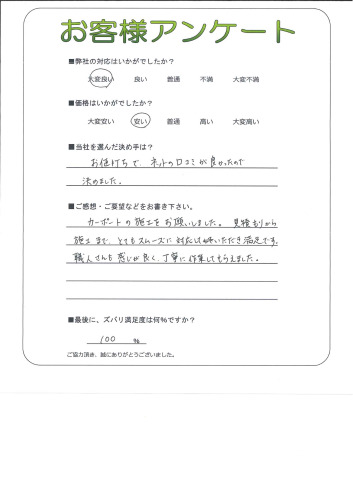 お客様アンケート
■弊社の対応はいかがでしたか？
大変良い 良い 普通 不満 大変不満
■価格はいかがでしたか？
大変安い 安い 普通 高い 大変高い
■当社を選んだ決め手は？
お値打ちで、ネットの口コミが良かったので
決めました。
■ご感想・ご要望などをお書き下さい。
カーポートの施工をお願いしました。見積もりから
施工まで、とてもスムーズに対応して頂いただき満足です。
職人さんも感じが良く、丁寧に作業してもらえました。
■最後に、ズバリ満足度は何%ですか？
100 %
ご協力頂き、誠にありがとうございました。